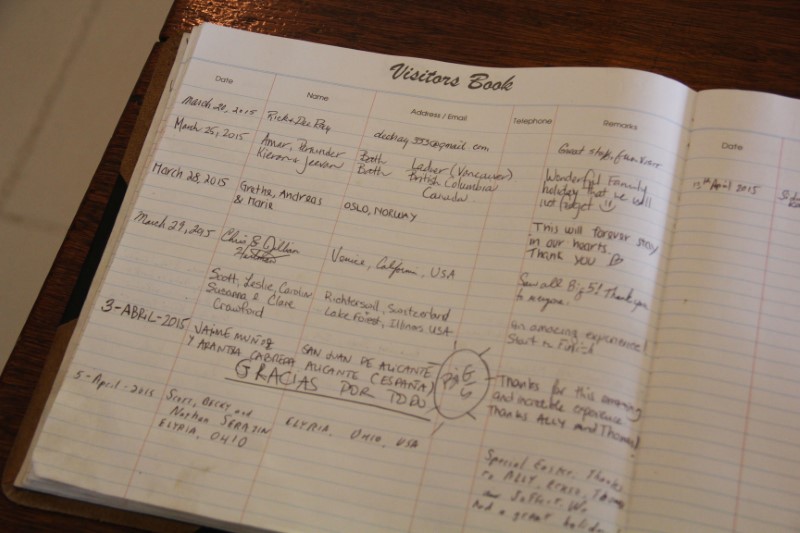 Visitors Book
Date Name Address / Email Telephone Remarks Date
March 20, 2015 Rick & Dee Ray Great stop, fun
March 25, 2015 Amar, Parminder Both British Columbia Wonderful Family
Kieran & Jeevan Both Ladner (Vancouver) holiday that we will
Canada not forget
March 28, 2015 Grethe, Andreas OSLO, NORWAY This will forever stay
& Marie in our hearts
Thank you
March 29, 2015 Chris & Dillon Venice, California, USA Saw all Big 5! Thank you
to everyone.
Scott, Leslie, Caroline Richterswil, Switzerland An amazing experience!
Susanna & Clare Lake Forest, Illinois USA Start to Finish
Crawford
3-ABRIL-2015 JAIME MUÑOZ SAN JUAN DE ALICANTE Thanks for this amazing
Y ARANTXA CABRERA ALICANTE (ESPAÑA) and increible experience
GRACIAS POR TODO BIG 5 Thanks ALLY and Thomas!
5-April-2015 Scott, Becky, and ELYRIA, OHIO, USA Special Easter. Thanks
Nathan SERAZIN to ALLY,
ELYRIA, OHIO and We
had a great holiday
13th April 2015